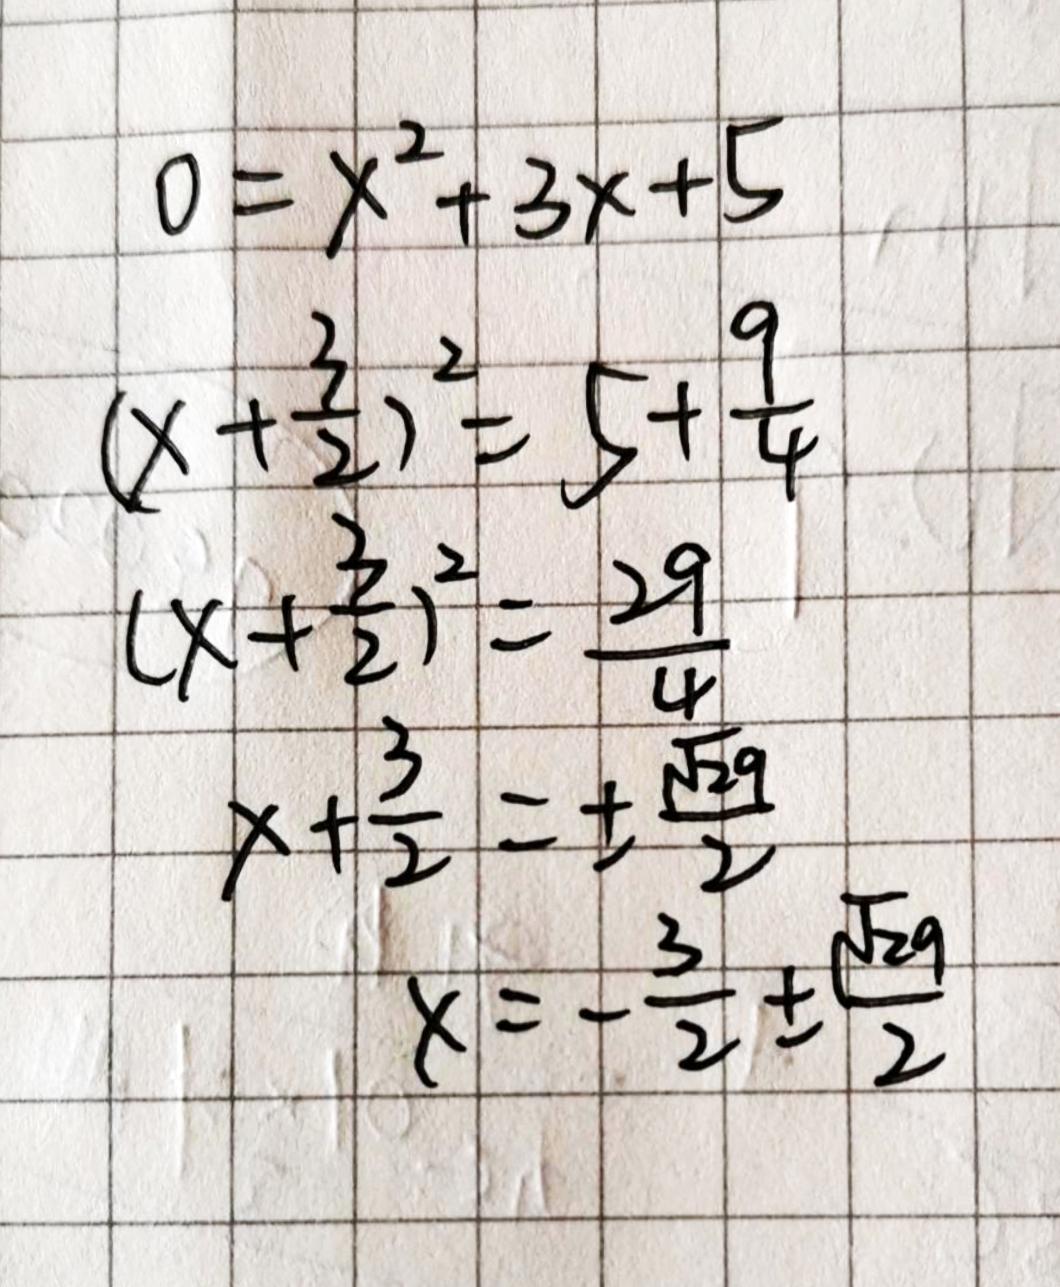 0 = x² + 3x + 5
(x + 3/2)² = 5 + 9/4
(x + 3/2)² = 29/4
x + 3/2 = ± √29/2
x = - 3/2 ± √29/2